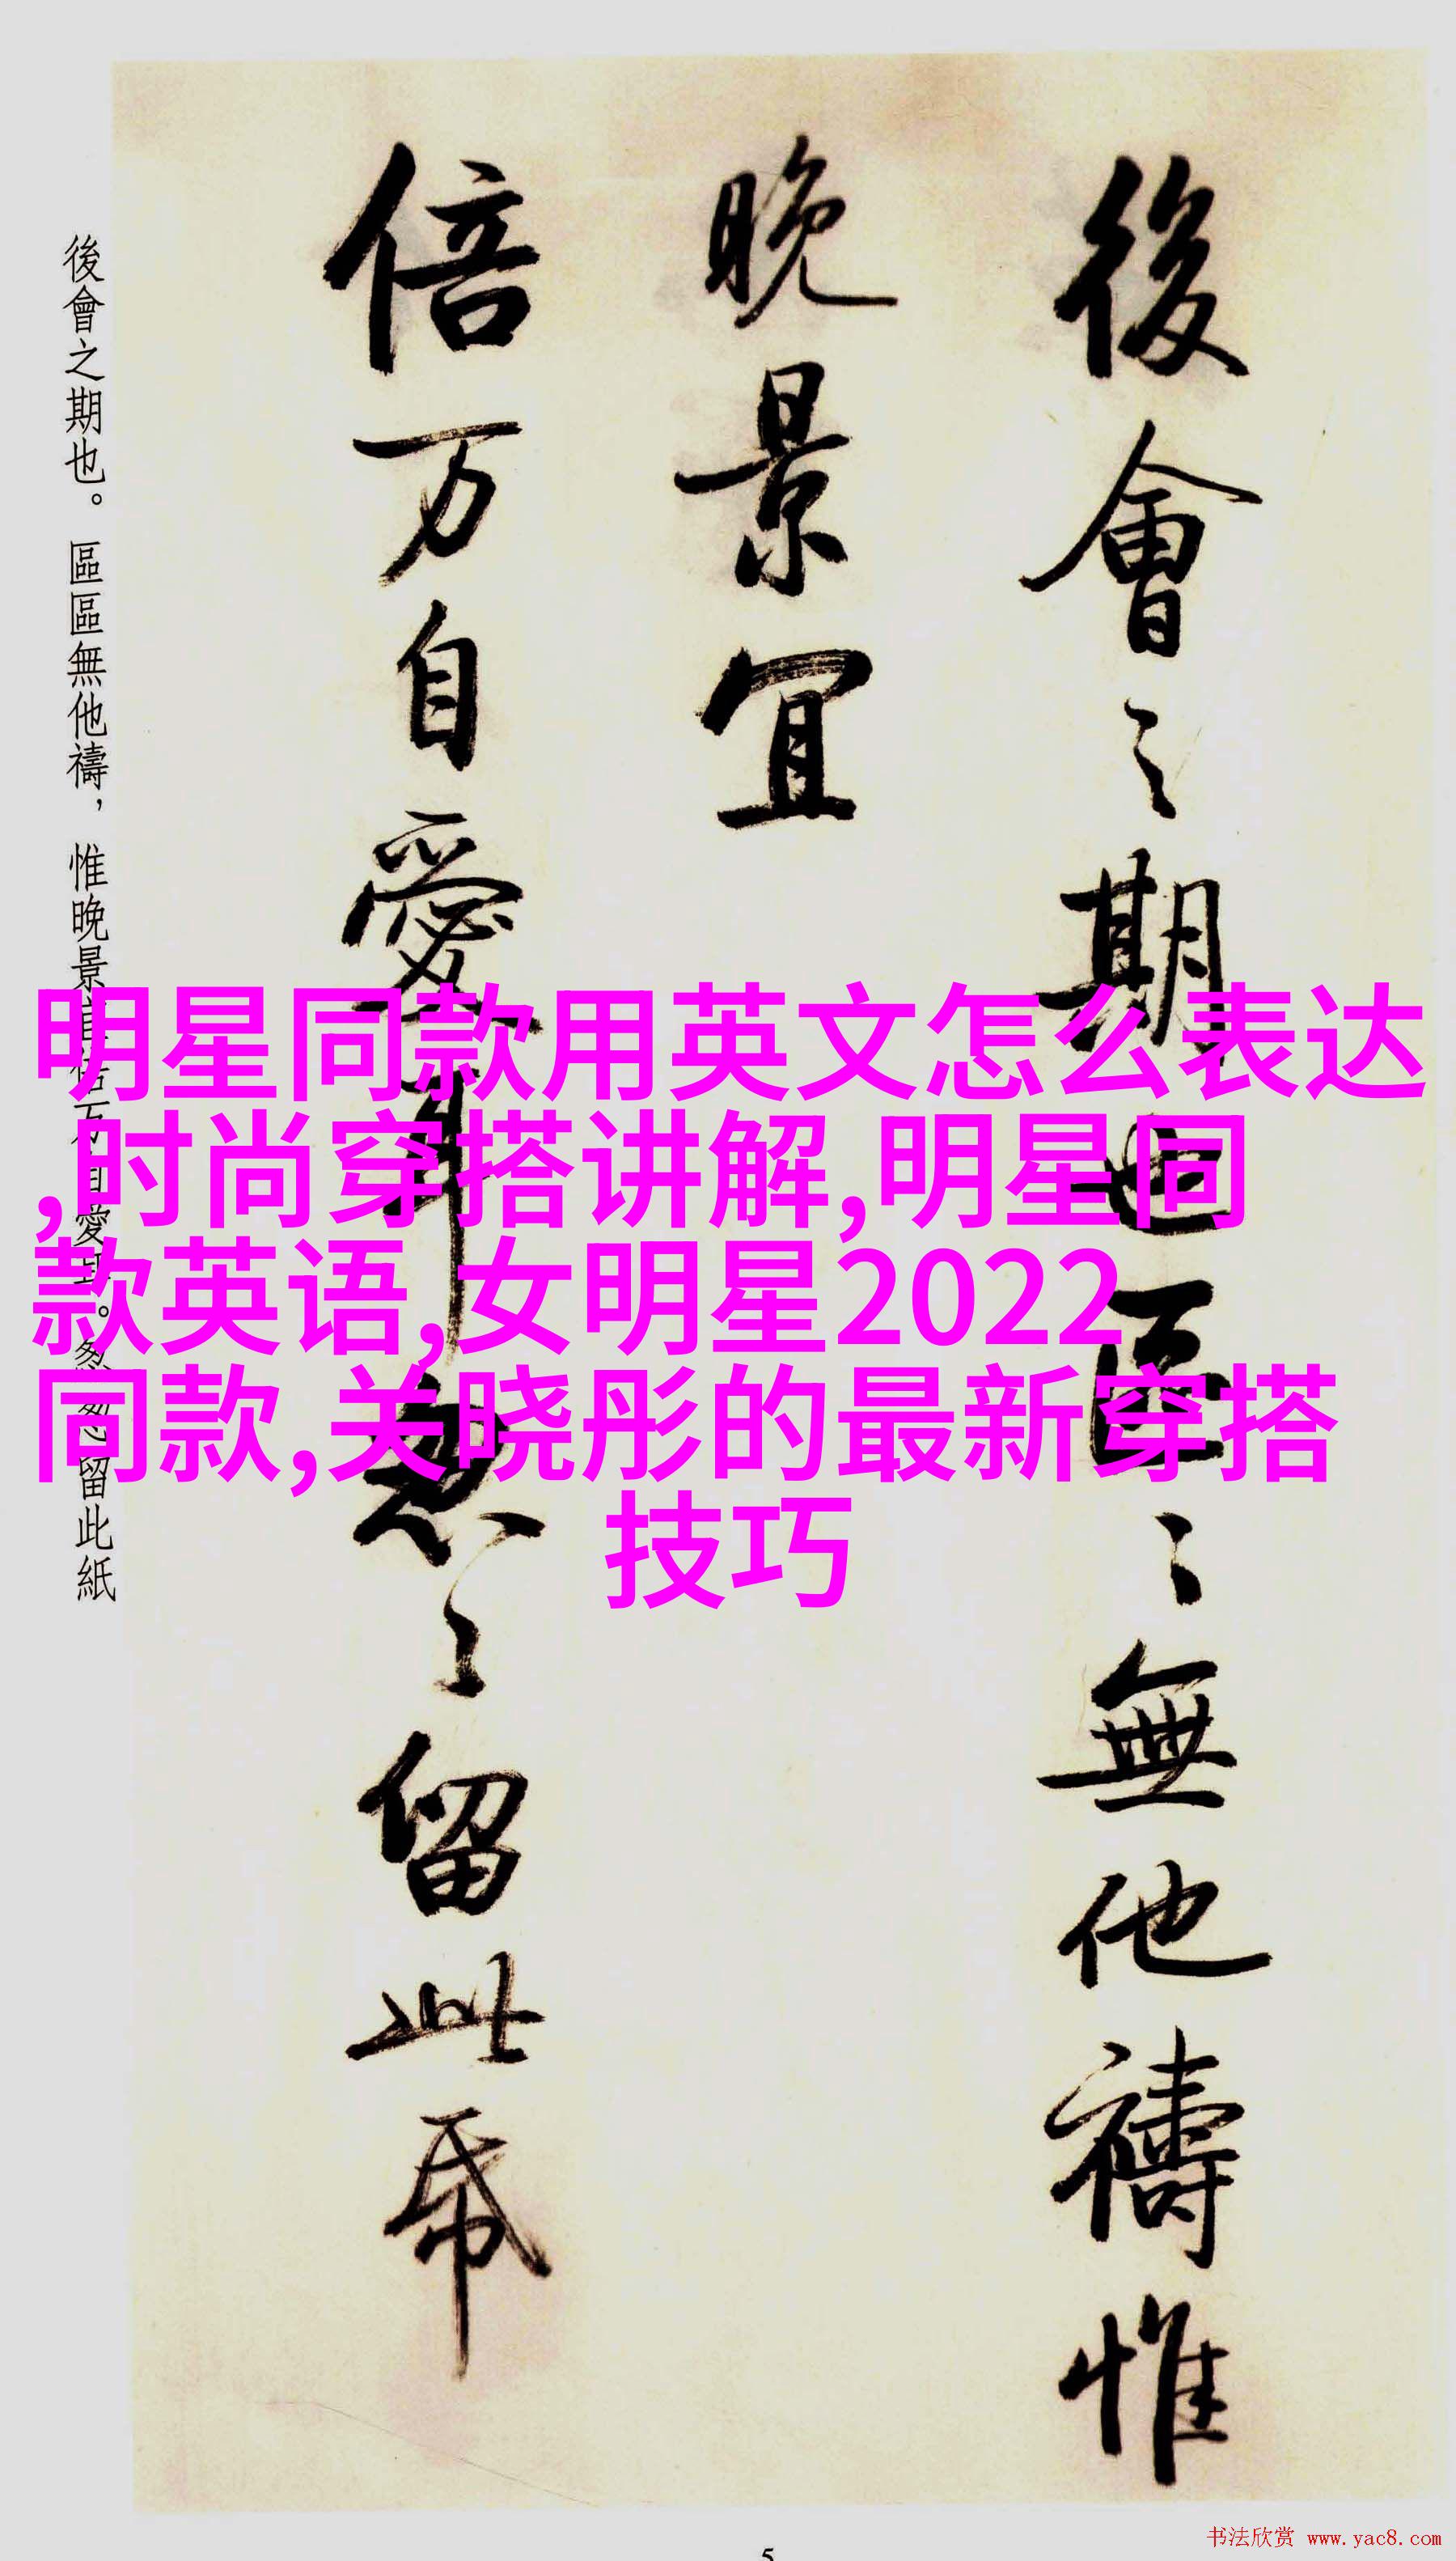 後會之期也區〻無他禱惟
晚景宜
倍万自愛耳怱〻留此帋
後會之期也。區區無他禱，惟晚景宜倍万自愛耳。怱怱留此紙
明星同款用英文怎么表达
,时尚穿搭讲解,明星同
款英语,女明星2022
同款,关晓彤的最新穿搭
技巧
5
书法欣赏 www.yac8.com